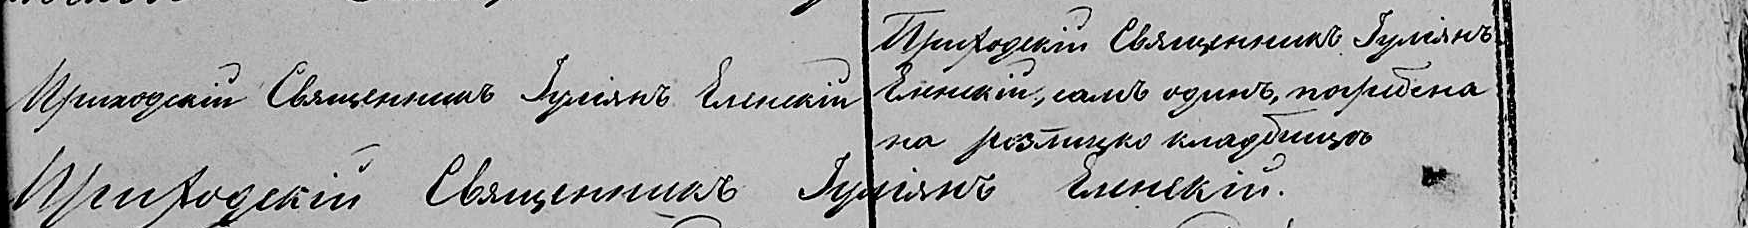 Приходскій Священникъ Іуліянъ Еленскій
Приходскій Священникъ Іуліянъ
Еленскій, самъ одинъ, погребена
на кладбищѣ
Приходскій Священникъ Іуліянъ Еленскій.